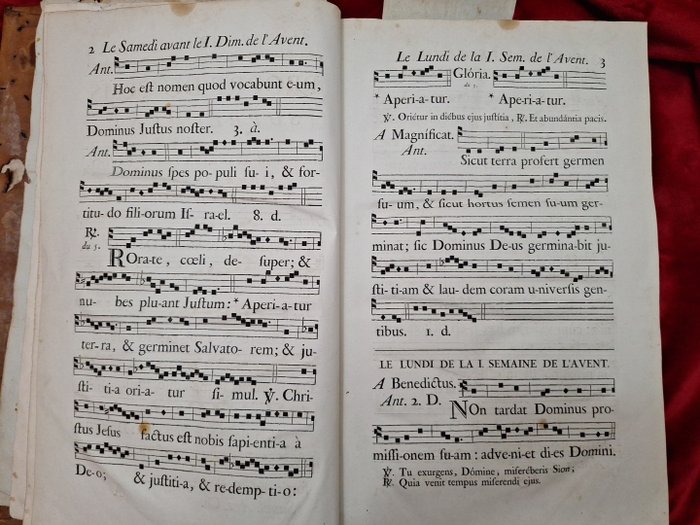 2 Le Samedi avant le I. Dim. de l'Avent.
Ant.
Hoc est nomen quod vocabunt e-um,
Dominus Justus noster. 3. à.
Ant.
Dominus spes po-puli su-i, & for-
titu-do fili-orum Is-ra-el. 8. d.
℟.
du 5.
ROra-te, cœli, de-super; &
nu-bes plu-ant Justum: * Aperi-a-tur
ter-ra, & germinet Salvato-rem; & ju-
sti-ti-a ori-a-tur si-mul. ℣. Chri-
stus Jesus factus est nobis sapi-enti-a à
De-o; & justiti-a, & redemp-ti-o:
Le Lundi de la I. Sem. de l'Avent. 3
Glória.
du 5.
* Aperi-a-tur. * Ape-ri-a-tur.
℣. Oriétur in diébus ejus justitia, ℟. Et abundántia pacis.
A Magnificat.
Ant.
Sicut terra profert germen
su-um, & sicut hortus semen su-um ger-
minat; sic Dominus De-us germina-bit ju-
sti-ti-am & lau-dem coram u-niversis gen-
tibus. 1. d.
LE LUNDI DE LA I. SEMAINE DE L'AVENT.
A Benedictus.
Ant. 2. D.
NOn tardat Dominus pro-
missi-onem su-am: adve-ni-et di-es Domini.
℣. Tu exurgens, Dómine, miseréberis Sion;
℟. Quia venit tempus miserendi ejus.